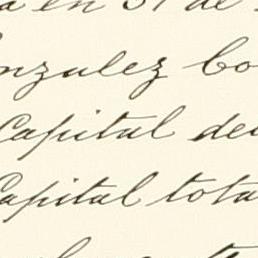 a en 31 de
nzalez Co
Capital de
Capital tota